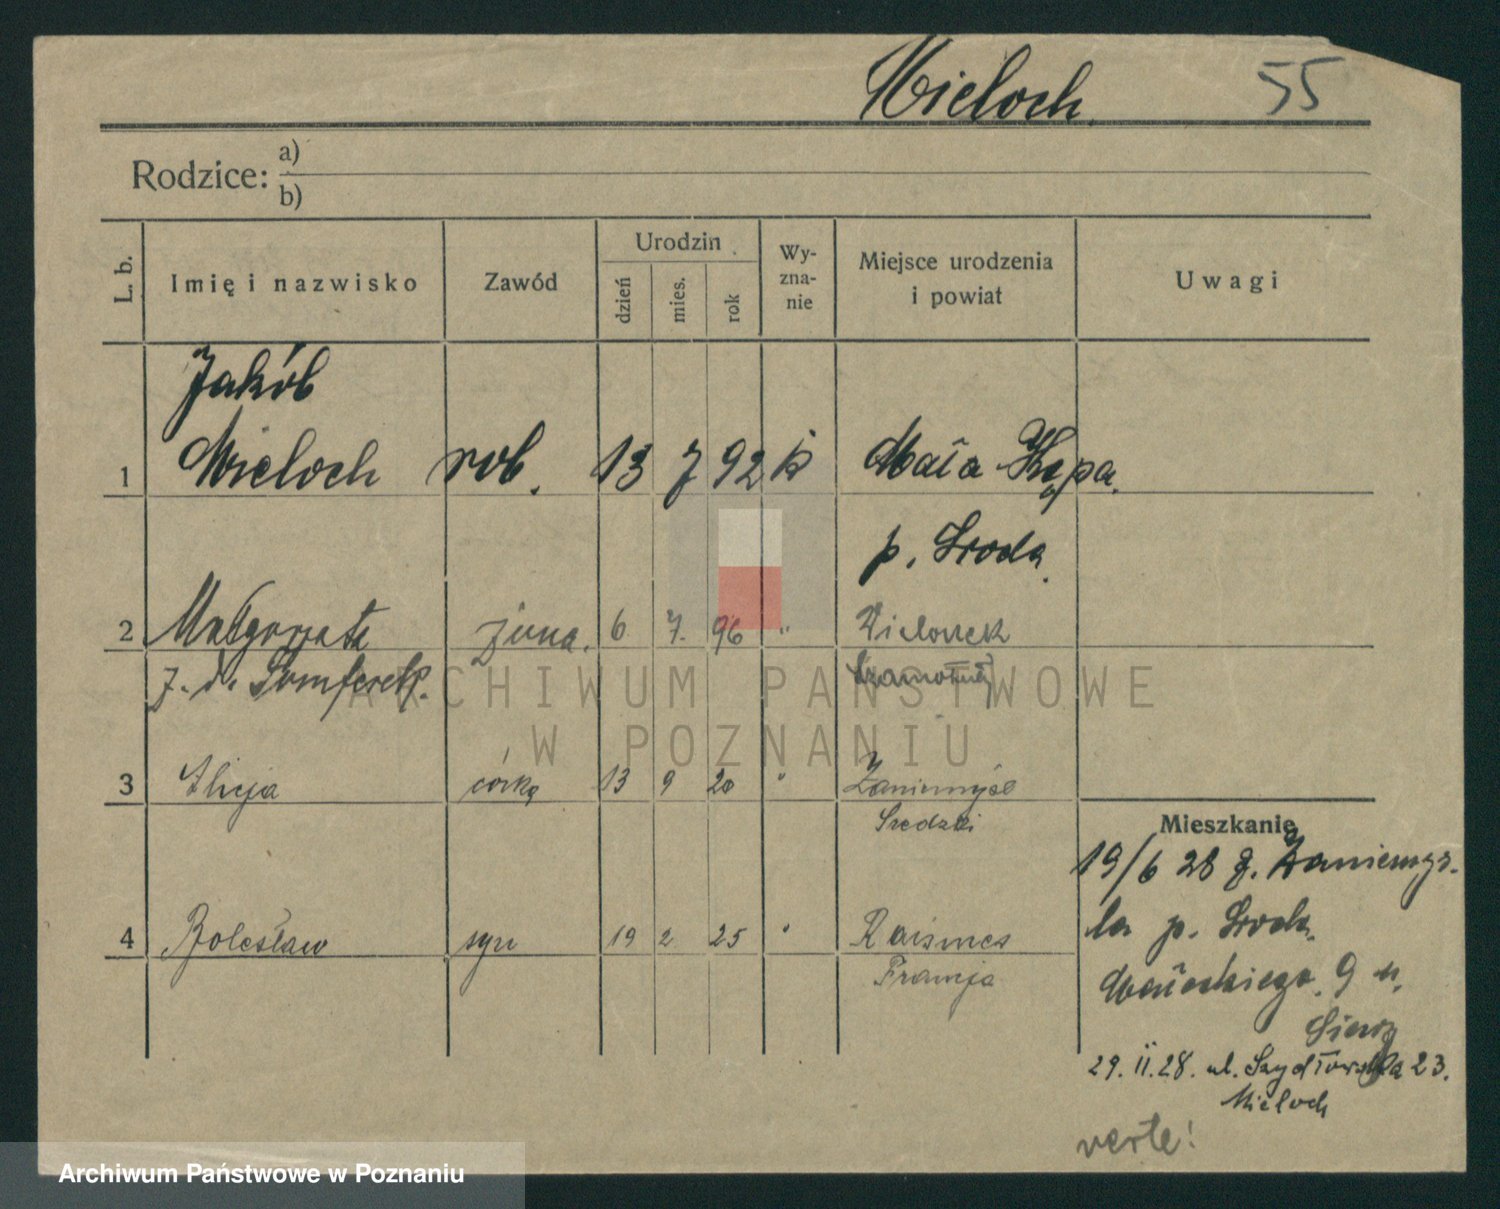 Mieloch 55
Rodzice: a)
b)
L. b. Imię i nazwisko Zawód Urodzin dzień mies. rok Wyznanie Miejsce urodzenia i powiat Uwagi
Jakób
1 Mieloch rob. 13 7 92 k Mała Kępa
p. Środa
2 Małgorzata żona. 6 7. 96 "
ż. d. Szamotuły
3 Alicja córka 13 9 20 " Zaniemyśl
Średzki
Mieszkanie
19/6 28 z Zaniemyś-
la p. Środa
4 Bolesław syn 19 2 25 " Raismes
Francja
Małeckiego 9 u
29. II. 28. ul. Szydłowska 23.
Mieloch
verte!
ARCHIWUM PAŃSTWOWE
W POZNANIU
Archiwum Państwowe w Poznaniu